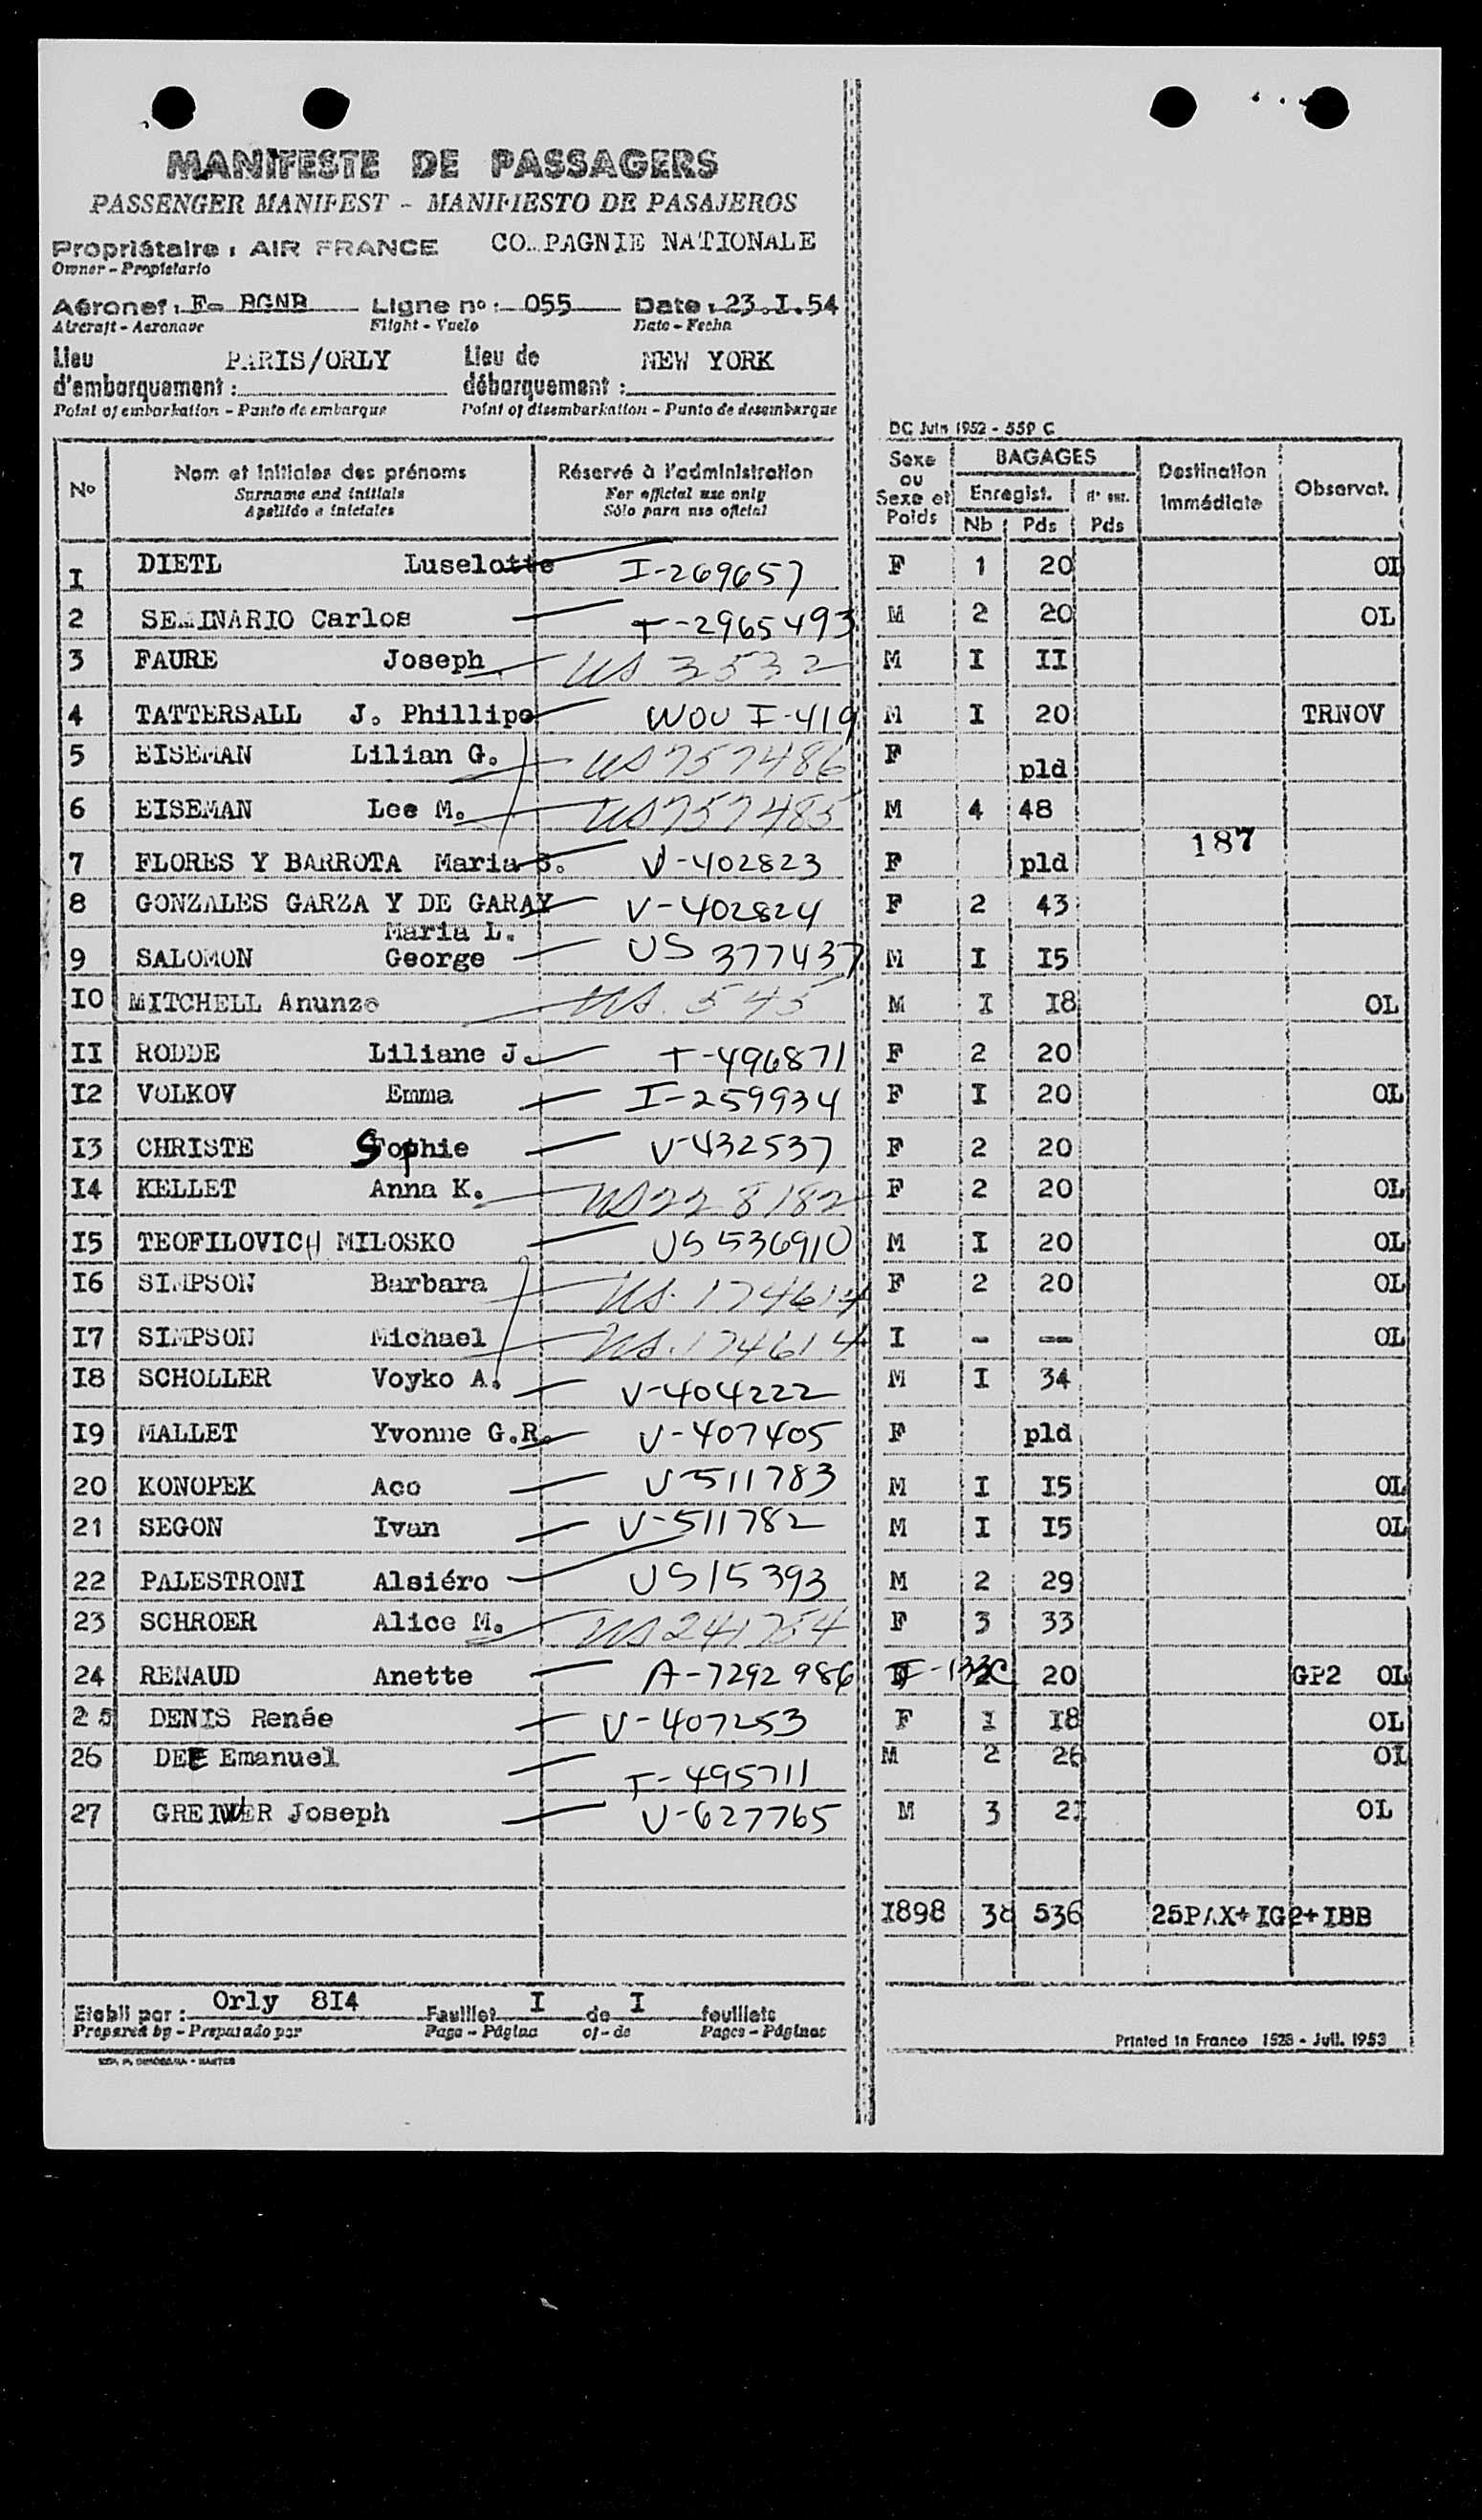 MANIFESTE DE PASSAGERS
PASSENGER MANIFEST - MANIFIESTO DE PASAJEROS
Propriétaire : AIR FRANCE CO PAGNIE NATIONALE
Owner - Propietario
Aéronef : F- BGNB Ligne n° : 055 Date : 23.I.54
Aircraft - Aeronave Flight - Vuelo Date - Fecha
Lieu d'embarquement : PARIS/ORLY Lieu de débarquement : NEW YORK
Point of embarkation - Punto de embarque Point of disembarkation - Punto de desembarque
DC Juin 1952 - 559 C
N° Nom et initiales des prénoms Réservé à l'administration Sexe ou Sexe et Poids BAGAGES Destination immédiate Observat.
Surname and initials For official use only Enregist.
Apellido e iniciales Sólo para uso oficial Nb Pds Pds
I DIETL Luselotte I-269657 F 1 20 OI
2 SEMINARIO Carlos T-2965493 M 2 20 OL
3 FAURE Joseph US 3532 M I II
4 TATTERSALL J. Phillipe WOU I-419 M I 20 TRNOV
5 EISEMAN Lilian G. US 757486 F pld
6 EISEMAN Lee M. US 757485 M 4 48
187
7 FLORES Y BARROTA Maria S. V-402823 F pld
8 GONZALES GARZA Y DE GARAY V-402824 F 2 43
Maria L.
9 SALOMON George US 377437 M I I5
I0 MITCHELL Anunzo US. 545 M I I8 OL
II RODDE Liliane J. T-496871 F 2 20
I2 VOLKOV Emma I-259934 F I 20 OL
I3 CHRISTE Sophie V-432537 F 2 20
I4 KELLET Anna K. US 228182 F 2 20 OL
I5 TEOFILOVICH MILOSKO US 536910 M I 20 OL
I6 SIMPSON Barbara US. 174614 F 2 20 OL
I7 SIMPSON Michael US. 174614 I - -- OL
I8 SCHOLLER Voyko A. V-404222 M I 34
I9 MALLET Yvonne G.R. V-407405 F pld
20 KONOPEK Aco V-511783 M I I5 OL
21 SEGON Ivan V-511782 M I I5 OL
22 PALESTRONI Alsiéro US 15393 M 2 29
23 SCHROER Alice M. US 241754 F 3 33
24 RENAUD Anette A-7292 986 I-133C 20 GP2 OL
25 DENIS Renée V-407253 F I I8 OL
26 DEE Emanuel T-495711 M 2 26 OL
27 GREINER Joseph V-627765 M 3 2I OL
I898 38 536 25PAX+IG2+IBB
Etabli par : Orly 8I4 Feuillet I de I feuillets
Prepared by - Preparado por Page - Página of - de Pages - Páginas
Printed in France 1528 - Juil. 1953